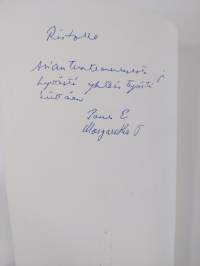 Ristolle
Asiantuntemuksesta ja
hyvästä yhteistyöstä
kiittäen
E
Margaretha T